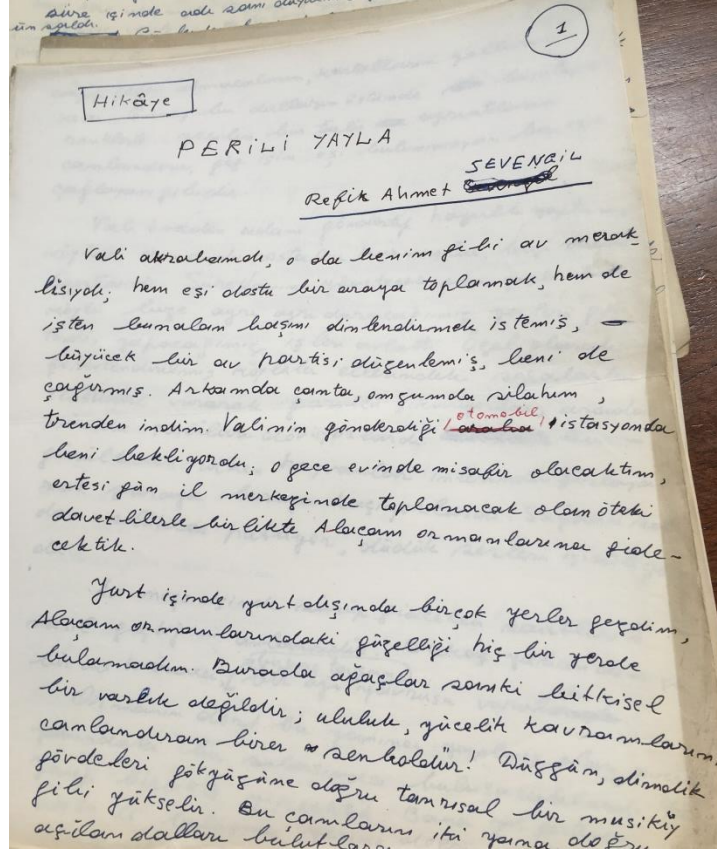 süre içinde adı sanı
1
Hikâye
PERİLİ YAYLA
SEVENGİL
Refik Ahmet
Vali akrabamdı, o da benim gibi av merak-
lısıydı; hem eşi dostu bir araya toplamak, hem de
işten bunalan başını dinlendirmek istemiş,
büyücek bir av partisi düzenlemiş, beni de
çağırmış. Arkamda çanta, omzumda silahım,
trenden indim. Valinin gönderdiği otomobil istasyonda
beni bekliyordu; o gece evinde misafir olacaktım,
ertesi gün il merkezinde toplanacak olan öteki
davetlilerle birlikte Alaçam ormanlarına gide-
cektik.
Yurt içinde yurt dışında birçok yerler gezdim,
Alaçam ormanlarındaki güzelliği hiç bir yerde
bulamadım. Burada ağaçlar sanki bitkisel
bir varlık değildir; ululuk, yücelik kavramların
canlandıran birer senboldür! Düzgün, dimdik
gövdeleri gökyüzüne doğru tanrısal bir musikiy
gibi yükselir. Bu çamların iki yana doğru
açılan dalları